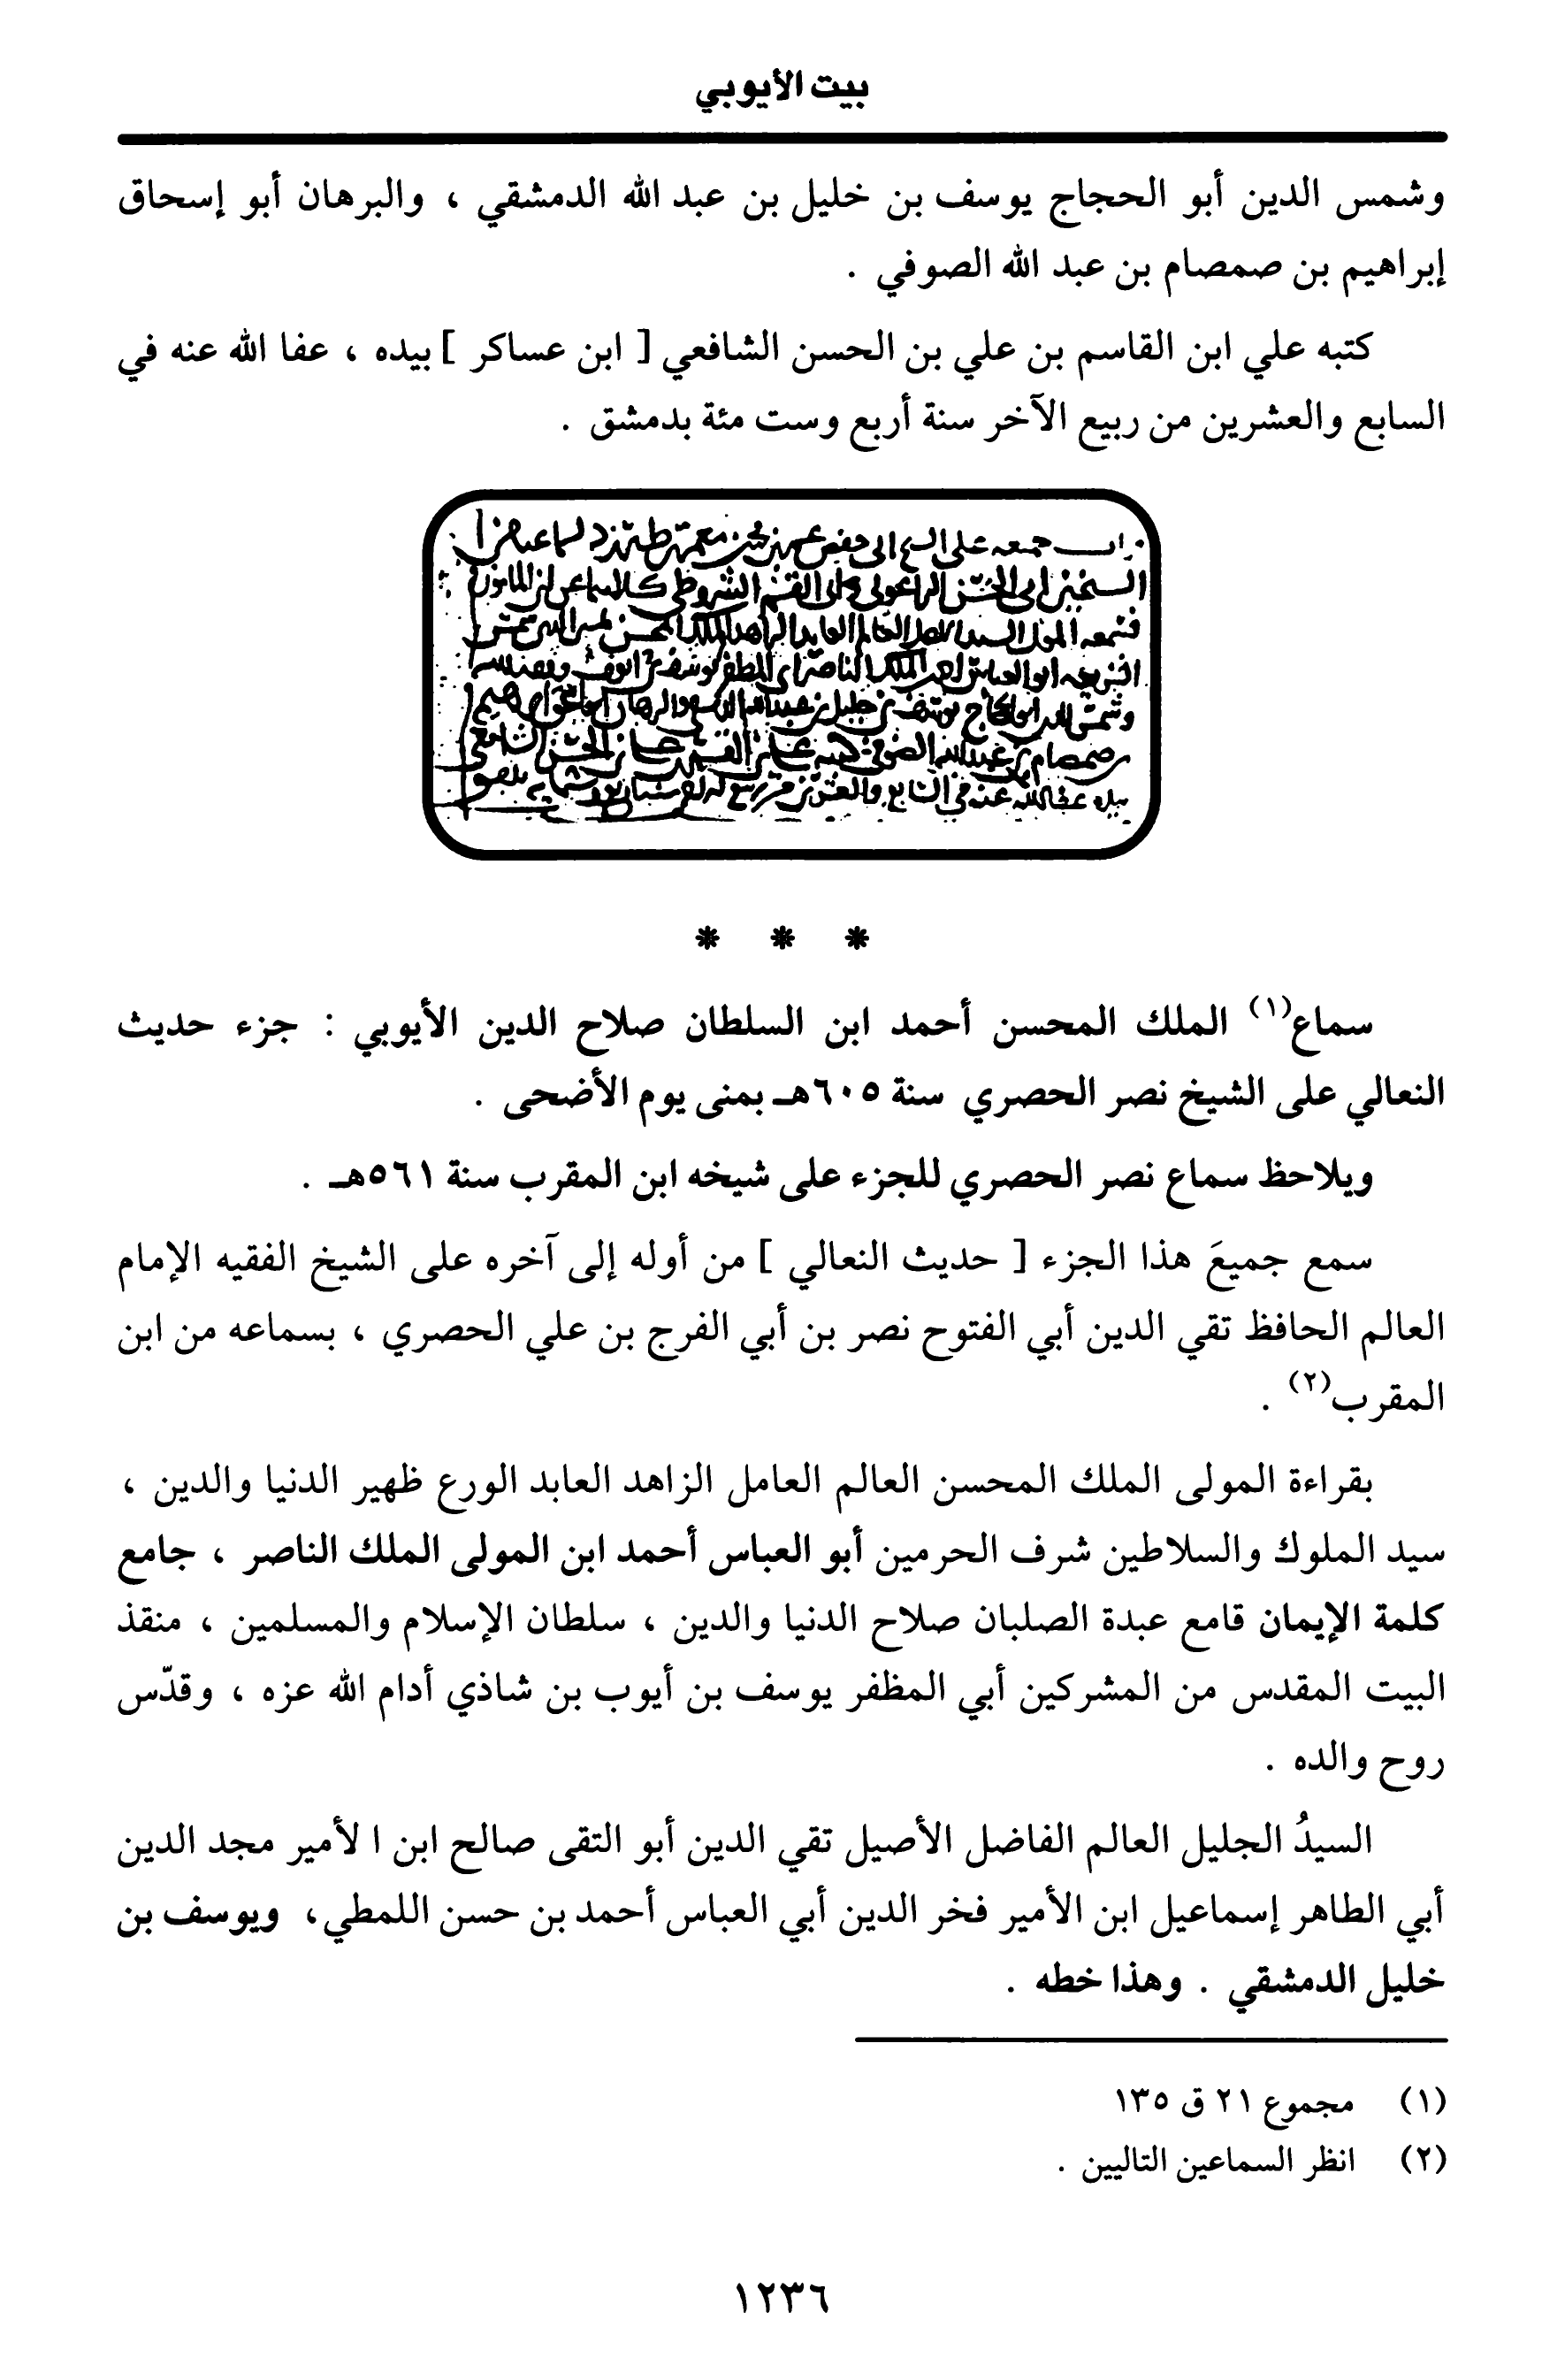 بيت الأيوبي
وشمس الدين أبو الحجاج يوسف بن خليل بن عبد الله الدمشقي ، والبرهان أبو إسحاق
إبراهيم بن صمصام بن عبد الله الصوفي .
كتبه علي ابن القاسم بن علي بن الحسن الشافعي [ ابن عساكر ] بيده ، عفا الله عنه في
السابع والعشرين من ربيع الآخر سنة أربع وست مئة بدمشق .
* * *
سماع(١) الملك المحسن أحمد ابن السلطان صلاح الدين الأيوبي : جزء حديث
النعالي على الشيخ نصر الحصري سنة ٦٠٥هـ بمنى يوم الأضحى .
ويلاحظ سماع نصر الحصري للجزء على شيخه ابن المقرب سنة ٥٦١هـ .
سمع جميعَ هذا الجزء [ حديث النعالي ] من أوله إلى آخره على الشيخ الفقيه الإمام
العالم الحافظ تقي الدين أبي الفتوح نصر بن أبي الفرج بن علي الحصري ، بسماعه من ابن
المقرب(٢) .
بقراءة المولى الملك المحسن العالم العامل الزاهد العابد الورع ظهير الدنيا والدين ،
سيد الملوك والسلاطين شرف الحرمين أبو العباس أحمد ابن المولى الملك الناصر ، جامع
كلمة الإيمان قامع عبدة الصلبان صلاح الدنيا والدين ، سلطان الإسلام والمسلمين ، منقذ
البيت المقدس من المشركين أبي المظفر يوسف بن أيوب بن شاذي أدام الله عزه ، وقدّس
روح والده .
السيدُ الجليل العالم الفاضل الأصيل تقي الدين أبو التقى صالح ابن ا لأمير مجد الدين
أبي الطاهر إسماعيل ابن الأمير فخر الدين أبي العباس أحمد بن حسن اللمطي، ويوسف بن
خليل الدمشقي . وهذا خطه .
(١) مجموع ٢١ ق ١٣٥
(٢) انظر السماعين التاليين .
١٢٣٦